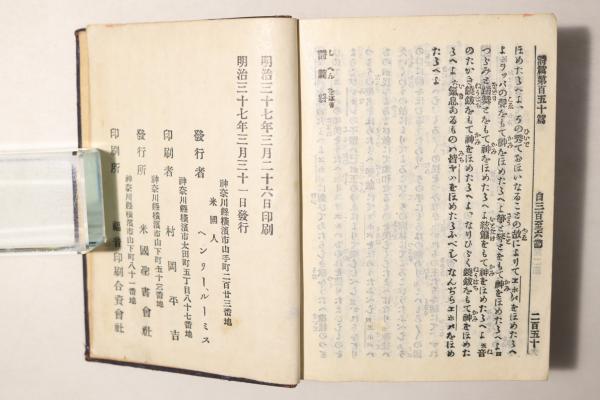 詩篇第百五十篇
自三百至六節
二百五十
ほめたゝへよ その秀ておほいなることの故によりてヱホバをほめたゝへ
よ ラッパの聲をもて神をほめたゝへよ 箏と琴とをもて神をほめたゝへよ
つゞみと蹈舞とをもて神をほめたゝへよ 絃簫をもて神をほめたゝへよ 音
のたかき鐃鈸をもて神をほめたゝへよ なりひゞく鐃鈸をもて神をほめた
ゝへよ 氣息あるものハ皆ヤハをほめたゝふべし なんぢらヱホバをほめ
たゝへよ
詩篇 終
明治三十七年三月二十六日印刷
明治三十七年三月三十一日發行
神奈川縣横濱市山手町二百廿三番地
米國人
發行者 ヘンリー、ルーミス
神奈川縣横濱市太田町五丁目八十七番地
印刷者 村岡平吉
神奈川縣横濱市山下町五十三番地
發行所 米國聖書會社
神奈川縣横濱市山下町八十一番地
印刷所 福音印刷合資會社